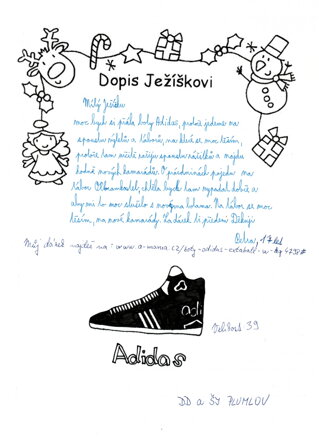 Dopis Ježíškovi
Milý Ježíšku
moc bych si přála boty Adidas, protože jedeme na
spoustu výletů a táborů, na které se moc těším,
protože tam určitě zažiju spoustu zážitků a najdu
hodně nových kamarádů. V prázdninách pojedu na
tábor chtěla bych tam vypadat dobře a
aby mi to moc slušelo s novýma botama. Na tábor se moc
těším, na nové kamarády. Za dárek ti předem Děkuji
Petra, 17 let
Můj dárek najdeš na: www.a-mania.cz/boty-adidas
adi
Velikost 39
Adidas
DD a ŠJ PLUMLOV